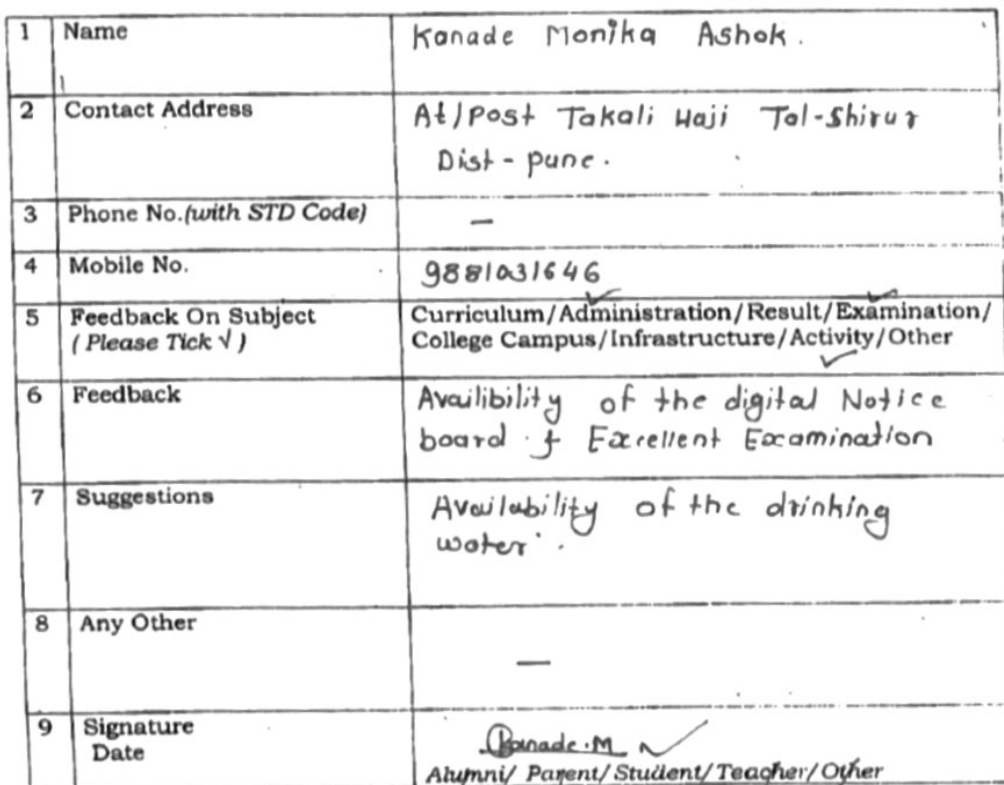 1 Name Kanade Monika Ashok.
2 Contact Address At/Post Takali Haji Tal-Shirur
Dist - pune.
3 Phone No.(with STD Code) —
4 Mobile No. 9881031646
5 Feedback On Subject Curriculum/Administration/Result/Examination/
( Please Tick √ ) College Campus/Infrastructure/Activity/Other
6 Feedback Availibility of the digital Notice
board & Excellent Examination
7 Suggestions Availability of the drinking
water.
8 Any Other —
9 Signature Kanade.M
Date Alumni/ Parent/Student/Teacher/Other